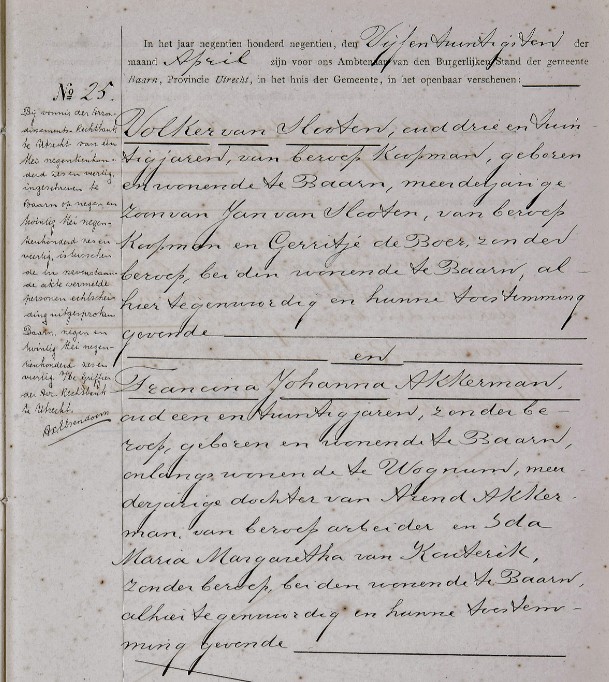 In het jaar negentien honderd negentien, den Vijfentwintigsten der
maand April zijn voor ons Ambtenaar van den Burgerlijken Stand der gemeente
Baarn, Provincie Utrecht, in het huis der Gemeente, in het openbaar verschenen:
No 25.
Volker van Slooten, oud drie en twin-
tig jaren, van beroep Koopman, geboren
en wonende te Baarn, meerderjarige
zoon van Jan van Slooten, van beroep
Koopman en Gerritje de Boer, zonder
beroep, beiden wonende te Baarn, al-
hier tegenwoordig en hunne toestemming
gevende
en
Francina Johanna Akkerman,
oud een en twintig jaren, zonder be-
roep, geboren en wonende te Baarn,
onlangs wonende te Wognum, meer-
derjarige dochter van Arend Akker-
man, van beroep arbeider en Ida
Maria Margaretha van Kouterik,
zonder beroep, beiden wonende te Baarn,
alhier tegenwoordig en hunne toestem-
ming gevende
Bij vonnis der Arron-
dissements-Rechtbank
te Utrecht van een
Mei negentienhon-
derd zes en veertig,
ingeschreven te
Baarn op negen en
twintig Mei negen-
tienhonderd zes en
veertig, is tusschen
de in nevenstaan-
de akte vermelde
personen echtschei-
ding uitgesproken
Baarn, negen en
twintig Mei negen-
tienhonderd zes en
veertig. De Griffier
der Arr. Rechtbank
te Utrecht.